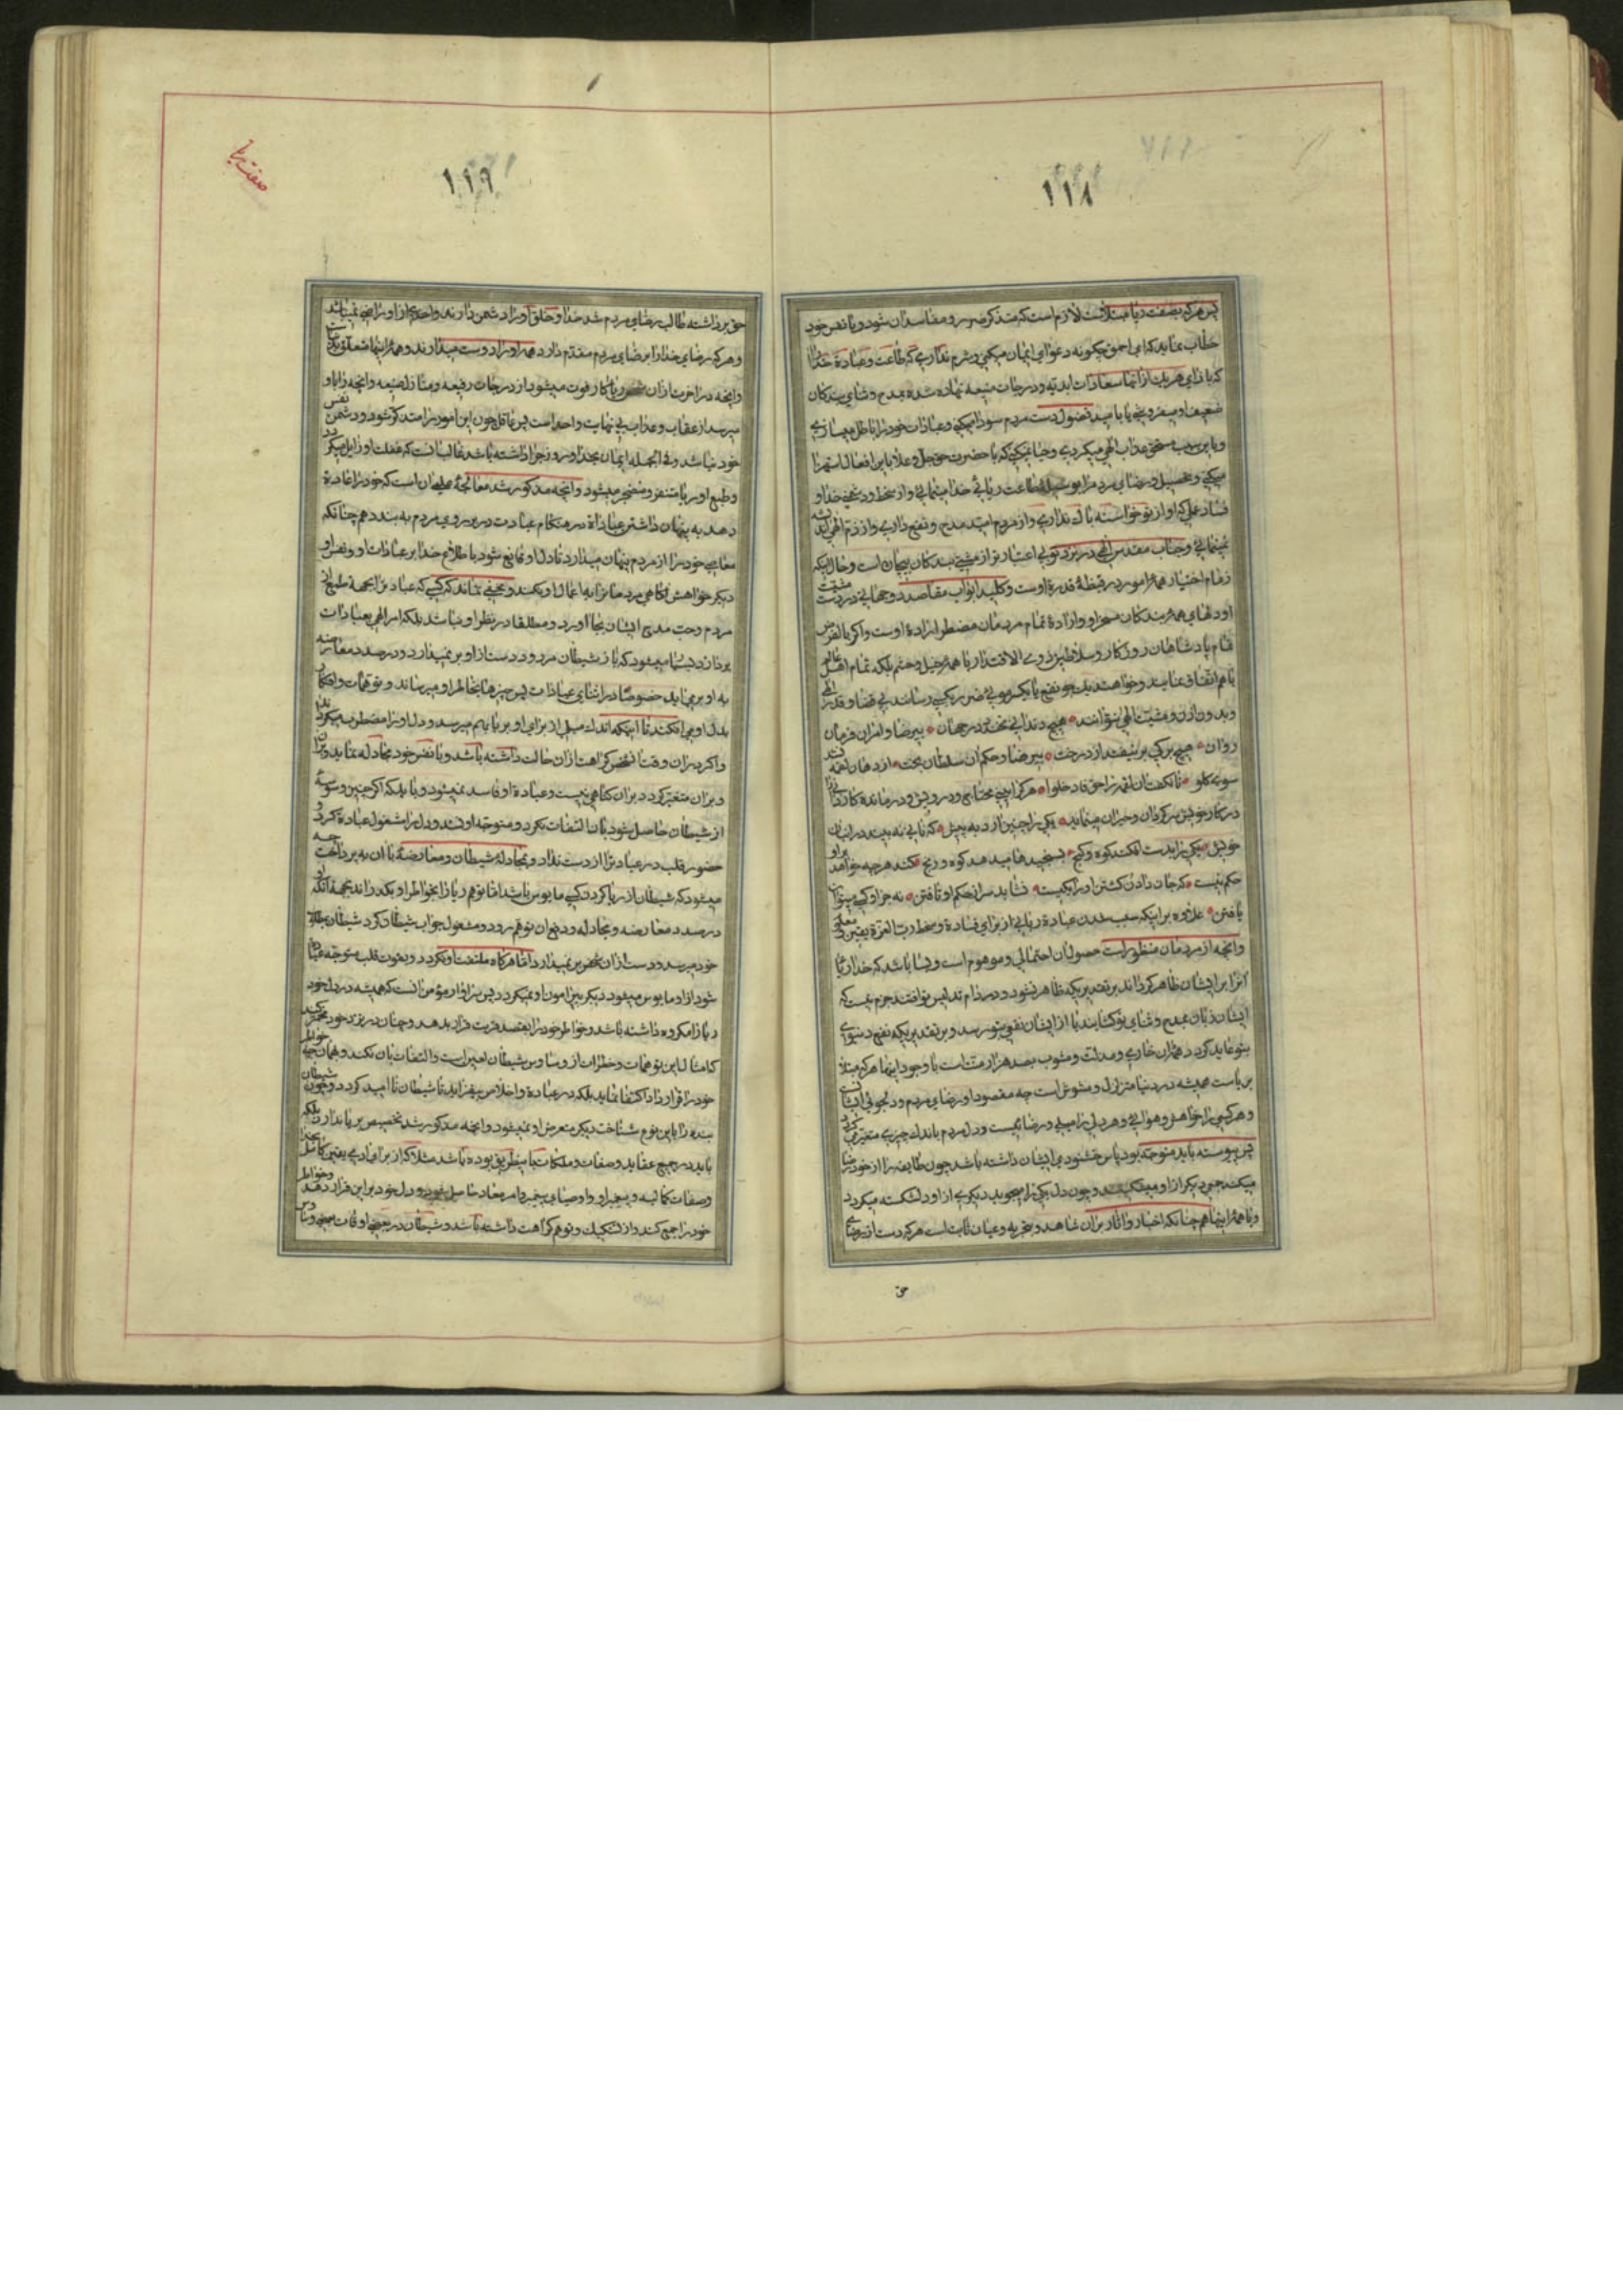 ۱۱۸
پس هر که بصفت ریا مبتلاست لازم است که متذکر ضرر و مفاسد ان شود و با نفس خود
خطاب نماید که ای احمق چگونه دعوای ایمان میکنی و شرم نداری که طاعت و عبادة خدا را
که بازای هر یک از انها سعادات ابدیه و درجات منیعه نهاده شده بمدح و ثنای بندکان
ضعیف او میفروشی یا بامید فضول دست مردم سودا میکنی و عبادات خود را باطل میسازی
و باین سبب مستحق عذاب الهی میکردی و حیا نمیکنی که با حضرت حق جل و علا باین افعال استهزا
میکنی و تحصیل رضای مردم را بوسیله طاعت ریائی خدا مینمائی و از سخط و دشمنی خدا و
فساد عملی که او از تو خواسته باک نداری و از مردم امید مدح و نفع داری و از ذم الهی اندیشه
نمینمائی و جناب مقدس الهی در نزد تو بی اعتبارتر از مشتی بندکان بیجان است و حال اینکه
زمام اختیار همه امور در قبضه قدرة اوست و کلید ابواب مقاصد دو جهانی در دست مشیت
او دلهای همه بندکان مسخر او و ارادة تمام مردمان مضطر ارادة اوست و اکر بالفرض
تمام پادشاهان روزکار و سلاطین ذوی الاقتدار با همه خیل و حشم بلکه تمام اهل عالم
با هم اتفاق نمایند و خواهند یک جو نفع یا یکسر موی ضرر بکسی رسانند بی قضا و قدر الهی
و بدون اذن و مشیت الهی نتوانند هیچ دندانی نخندد در جهان بیرضا و امر ان فرمان
روان هیچ برکی بر نیفتد از درخت بیرضا و حکم ان سلطان بخت از دهان لقمه نشد
سوی کلو تا نکفت ان لقمه را حق فادخلوا هر کرا بینی محتاج و درویش و درمانده کار
در کار خویش سرکردان و حیران مینماید یکی را چنین ارد به پیش که نانی نه بیند در انبان
خویش یکی را بدست افکند کوه و کنج بسنجیدها میدهد کوه و رنج کند هر چه خواهد بر او
حکم نیست که جان دادن کشتن او را یکیست نشاید سر از حکم او تافتن نه جز او کسی میتوان
یافتن علاوه بر اینکه سبب شدن عبادة ریائی از برای فساد و سخط رب العزة یقین و معلوم
و انچه از مردمان منظور است حصول ان احتمالی و موهوم است و بسا باشد که خدا ریا
انرا بر ایشان ظاهر کرداند بر تقدیریکه ظاهر نشود و در دام تدلیس تو افتند جزم نیست که
ایشان زبان بمدح و ثنای تو کشایند یا از ایشان نفعی بتو رسد و بر تقدیریکه نفع دنیوی
بتو عاید کردد همان خاری و مذلت و مشوب بصد هزار منت است با وجود اینها هر که مبتلا
بریاست همیشه در دنیا متزلزل و مشوش است چه مقصود او رضای مردم و دلجوئی ایشان
و هر کسی را خواهش و هوائی و هر دلی را میلی و رضائیست و دل مردم باندک چیزی متغیر می کردد
پس پیوسته باید متوجه بود پاس خشنودی ایشان داشته باشد چون طایفه را از خود رضا
میکند جمعی دیکر از او میکسلند و چون دل یکی را میجوید دیکری از او دلشکسته میکردد
و با همه اینها همچنانکه اخبار و اثار بران شاهد و تجربه و عیان ثابت است هر که دست از رضای
حق
صفت ریا
۱۱۹
حق برداشته طالب رضای مردم شد خدا و خلق او را دشمن دارند و احدی از او راضی نمیباشد
و هر که رضای خدا را بر رضای مردم مقدم دارد همه او را دوست میدارند و همه اینها متعلق بدنیاست
و انچه در اخرت از ان شخص ریاکار فوت میشود از درجات رفیعه و منازل منیعه و انچه را باو
میرسد از عقاب و عذاب بی نهایت و احد است پس عاقل چون این امور را متذکر شود و دشمن نفس
خود نباشد و فی الجمله ایمان بخدا و روز جزا داشته باشد غالب انست که غفلت او زایل میکردد
و طبع او از ریا متنفر و منضجر میشود و انچه مذکور شد معالجه علمی ان است که خود را عادة
دهد به پنهان داشتن عبادة در هنکام عبادت در بر روی مردم به بندد همچنانکه
معاصی خود را از مردم پنهان میدارد تا دل او قانع شود باطلاع خدا بر عبادات او و نفس او
دیکر خواهش اکاهی مردمان را به اعمال او نکند و مخفی نماند که کسی که عبادت را بجهة طمع از
مردم و حب مدح ایشان بجا اورد و مطلقا در نظر او نباشد بلکه امر الهی بعبادات
پردازد بسا میشود که باز شیطان مردود دست از او بر نمیدارد و در صدد معارضه
به او بر میاید خصوصا در اثنای عبادات پس چیزها بخاطر او میرساند و توهمات و افکار
بدل او می افکند تا اینکه اندک میلی از برای او بریا بهم میرسد و دل او را مضطرب میکرداند
و اکر در ان وقت نفس کراهت از ان حالت داشته باشد و با نفس خود مجادله نماید و بر ان
و بران متغیر کردد بر ان کناهی نیست و عبادة او فاسد نمیشود و بلکه اکر چنین وسوسه
از شیطان حاصل شود بان التفات نکرد و متوجه او نشد و دل را مشغول عبادة کرد و
حضور قلب در عبادت را از دست نداد و مجادله شیطان و معارضه با ان نه پرداخت چه
میشود که شیطان از ریا کردن کسی مایوس باشد اما توهم ریا را بخواطر او بکذراند بجهة انکه او
در صدد معارضه و مجادله و دفع ان توهم رود و مشغول جواب شیطان کردد شیطان بمطلب
خود میرسد و دست از ان شخص بر نمیدارد اما هرکاه ملتفت او نکردد و بدون قلب متوجه عبادت
شود از او مایوس میشود دیکر پیرامون او نمیکردد پس سزاوار مؤمن انست که همیشه در دل خود
ریا را مکروه داشته باشد و خواطر خود را بقصد قربت قرار بدهد و چنان در نزد خود مخمر کند
که امثال این توهمات و خطرات از وساوس شیطان لعین است و التفات بان نکند و بهمان خواطر
خود را قرار داد اکتفا نماید بلکه در عبادة و اخلاص بیفزاید تا شیطان نا امید کردد و چون شیطان
بنده را باین نوع شناخت دیکر متعرض او نمیشود و انچه مذکور شد تخصیص بریا ندارد بلکه
باید در جمیع عقاید و صفات و ملکات باین طریق بوده باشد مثلا اکر از برای ادمی یقین کامل بخدا
و صفات کمالیه و پیغمبر او و اوصیای پیغمبر و امر معاد حاصل شود و دل خود بر این قرار دهد و خواطر
خود را جمع کند و از تشکیک و توهم کراهت داشته باشد و شیطان در بعضی اوقات